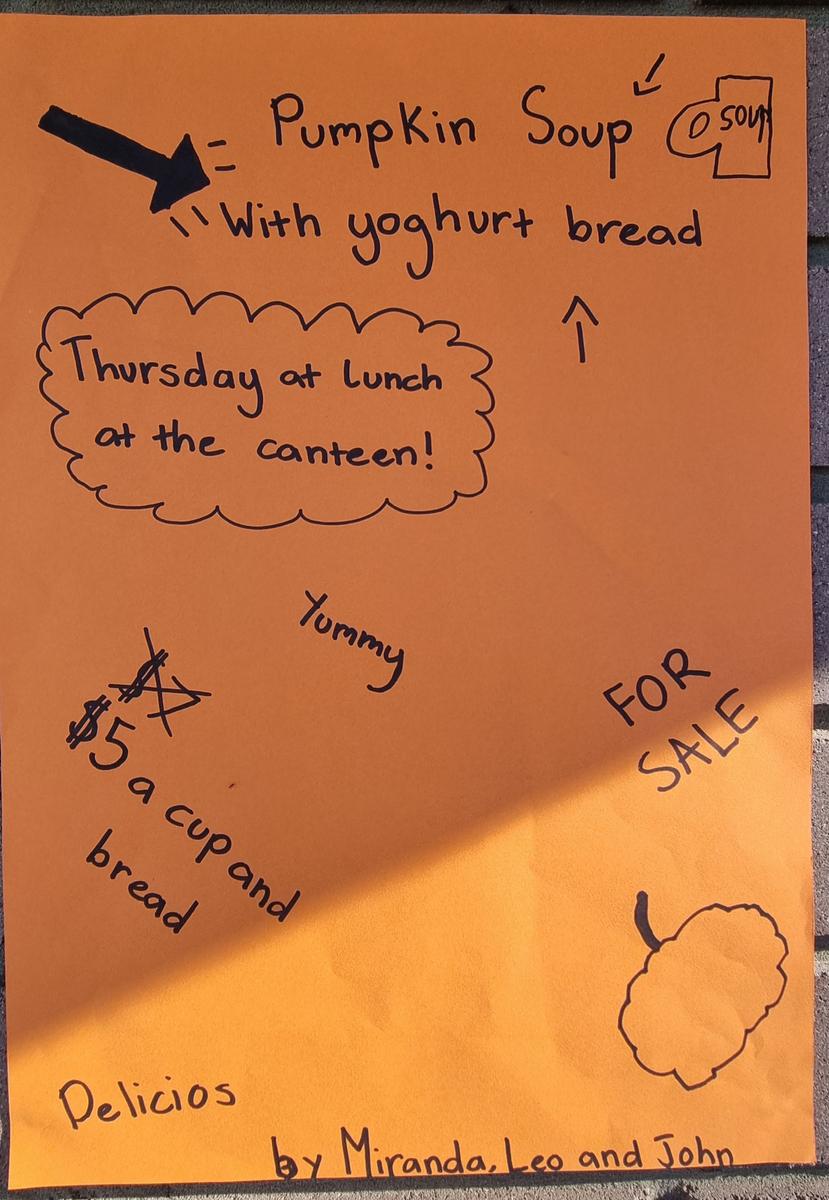 Pumpkin Soup
SOUP
With yoghurt bread
Thursday at lunch
at the canteen!
Yummy
FOR
SALE
$5 a cup and
bread
Delicios
by Miranda, Leo and John